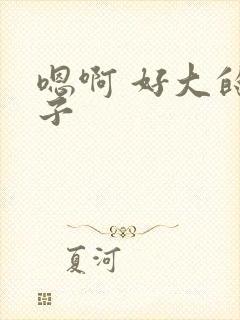 嗯啊 好大的
子
夏河